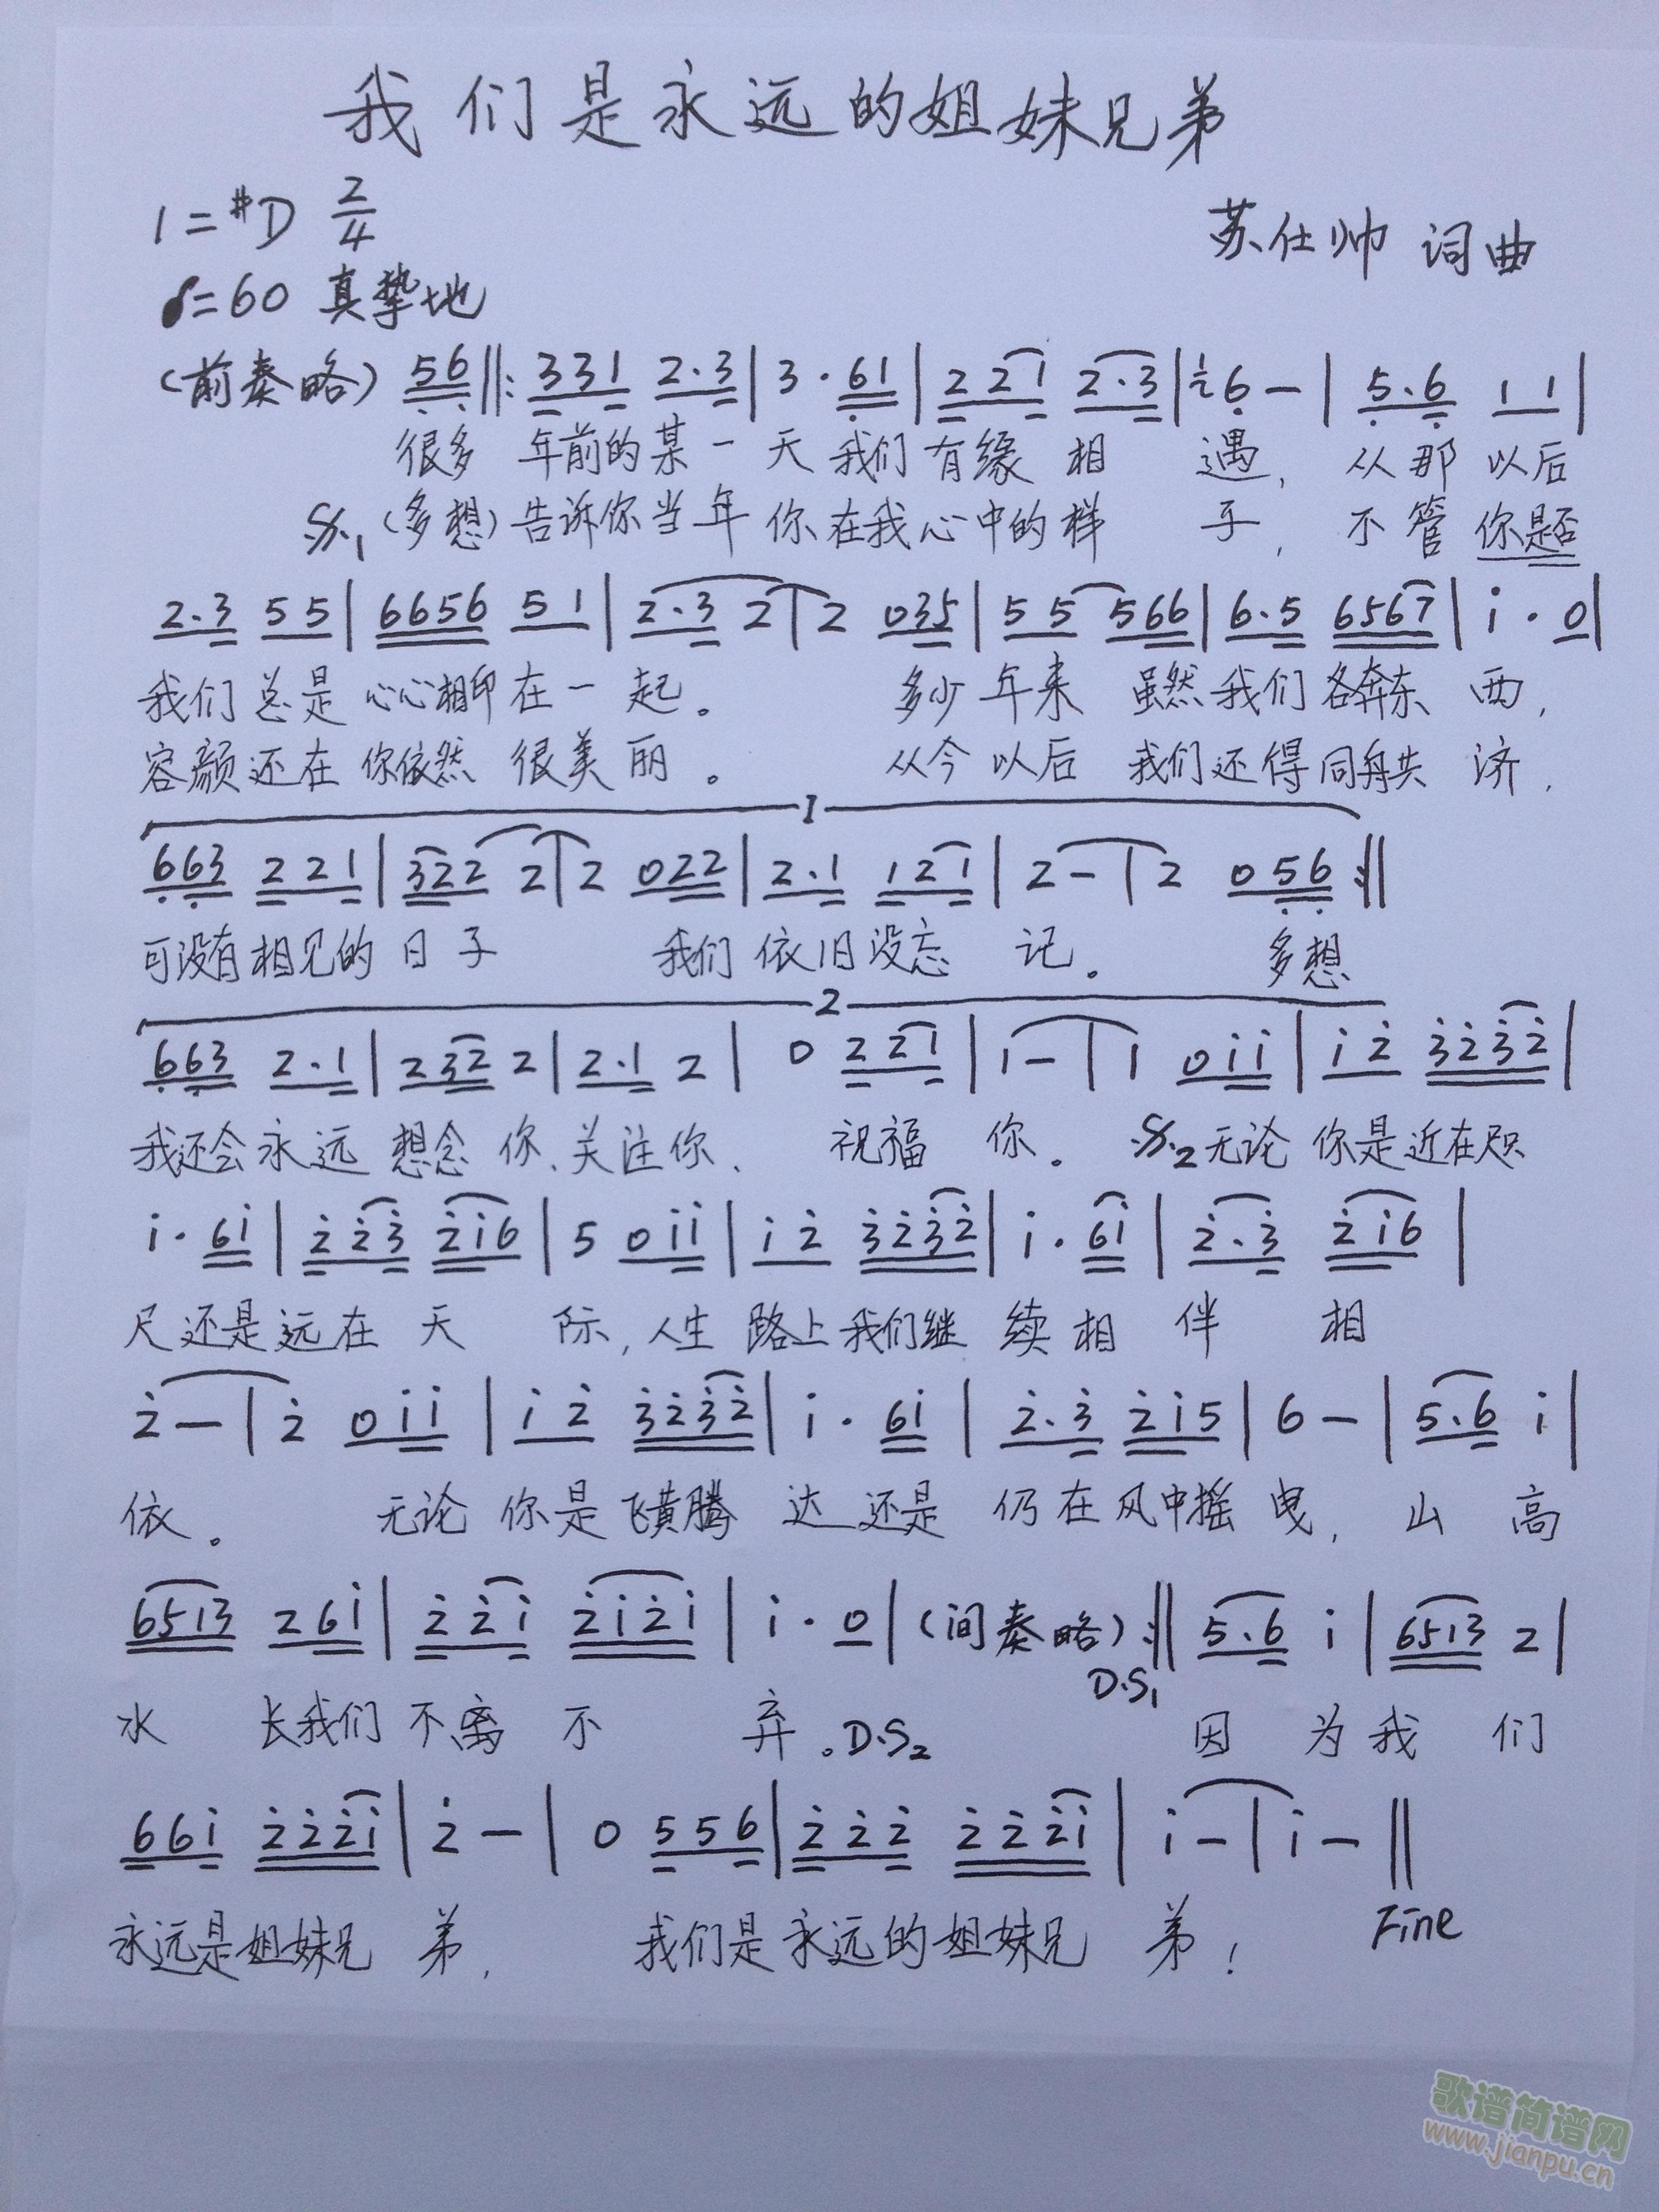 我们是永远的姐妹兄弟
1=#D 2/4
苏仕帅 词曲
♩=60 真挚地
(前奏略) 56‖: 331 2·3 | 3· 61 | 221 2·3 | 6 – | 5·6 11 |
很多 年前的某一天我们有缘相 遇, 从那以后
𝄋1 (多想) 告诉你当年 你在我心中的样 子, 不管你是否
2·3 55 | 6656 51 | 2·3 2 | 2 035 | 55 566 | 6·5 6567 | i· 0 |
我们总是心心相印在一起。 多少年来 虽然我们各奔东西,
容颜还在你依然很美丽。 从今以后 我们还得同舟共济,
1
663 221 | 322 2 | 2 022 | 2·1 121 | 2 – | 2 056 :‖
可没有相见的日子 我们依旧没忘记。 多想
2
663 2·1 | 232 2 | 2·1 2 | 0 221 | 1 – | 1 0ii | i2̇ 3̇2̇3̇2̇ |
我还会永远想念你、关注你、 祝福你。 𝄋2 无论你是近在咫
i· 6i | 2̇2̇3̇ 2̇i6 | 5 0ii | i2̇ 3̇2̇3̇2̇ | i· 6i | 2̇·3̇ 2̇i6 |
尺还是远在天 际,人生路上我们继续相伴 相
2̇ – | 2̇ 0ii | i2̇ 3̇2̇3̇2̇ | i· 6i | 2̇·3̇ 2̇i5 | 6 – | 5·6 i |
依。 无论你是飞黄腾达还是仍在风中摇曳, 山高
6513 26i | 2̇2̇i 2̇i2̇i | i· 0 | (间奏略) :‖ 5·6 i | 6513 2 |
D.S1
水 长我们不离不 弃。D.S2 因 为我 们
66i 2̇2̇2̇i | 2̇ – | 0 556 | 2̇2̇2̇ 2̇2̇2̇i | i – | i – ‖
永远是姐妹兄弟, 我们是永远的姐妹兄弟!
Fine
歌谱简谱网
www.jianpu.cn